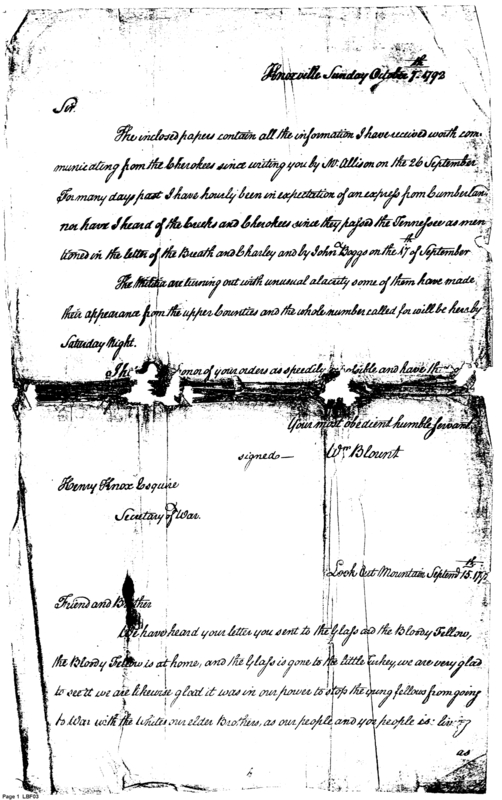 Knoxville Sunday October 7th 1792
Sir.
The inclosed papers contain all the information I have received worth com-
municating from the Cherokees since writing you by Mr. Allison on the 26 September
For many days past I have hourly been in expectation of an express from Cumberlan
nor have I heard of the Creeks and Cherokees since they passed the Tennessee as men
tioned in the letter of the Breath and Charley and by John D. Boggs on the 17th of September
The Militia are turning out with unusual alacrity some of them have made
their appearance from the upper Counties and the whole number called for will be here by
Saturday Night.
of your orders as speedily and have
Your most obedient humble Servant
signed— Wm Blount
Henry Knox Esquire
Secretary of War.
Look Out Mountain Septemb 15th
Friend and Brother
We have heard your letter you sent to the Glass and the Bloody Fellow,
the Bloody Fellow is at home, and the Glass is gone to the little Turkey, we are very glad
to see it we are likewise glad it was in our power to stop the yung fellows from going
to War with the Whites our elder Brothers, as our people and you people is living
as
Page 1 LBF03